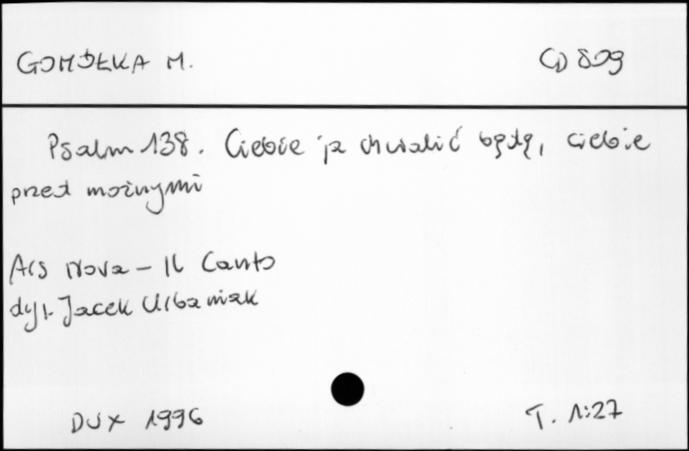 GOMÓŁKA M.
CD 809
Psalm 138. Ciebie ja chwalić będę, ciebie
przed możnymi
Ars Nova - Il Canto
dyr. Jacek Urbaniak
DUX 1996
T. 1:27